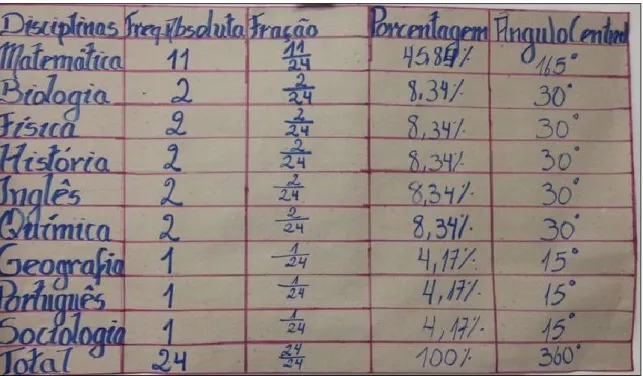 Disciplinas Freq.Absoluta Fração Porcentagem Ângulo Central
Matemática 11 11/24 45,84% 165°
Biologia 2 2/24 8,34% 30°
Física 2 2/24 8,34% 30°
História 2 2/24 8,34% 30°
Inglês 2 2/24 8,34% 30°
Química 2 2/24 8,34% 30°
Geografia 1 1/24 4,17% 15°
Português 1 1/24 4,17% 15°
Sociologia 1 1/24 4,17% 15°
Total 24 24/24 100% 360°